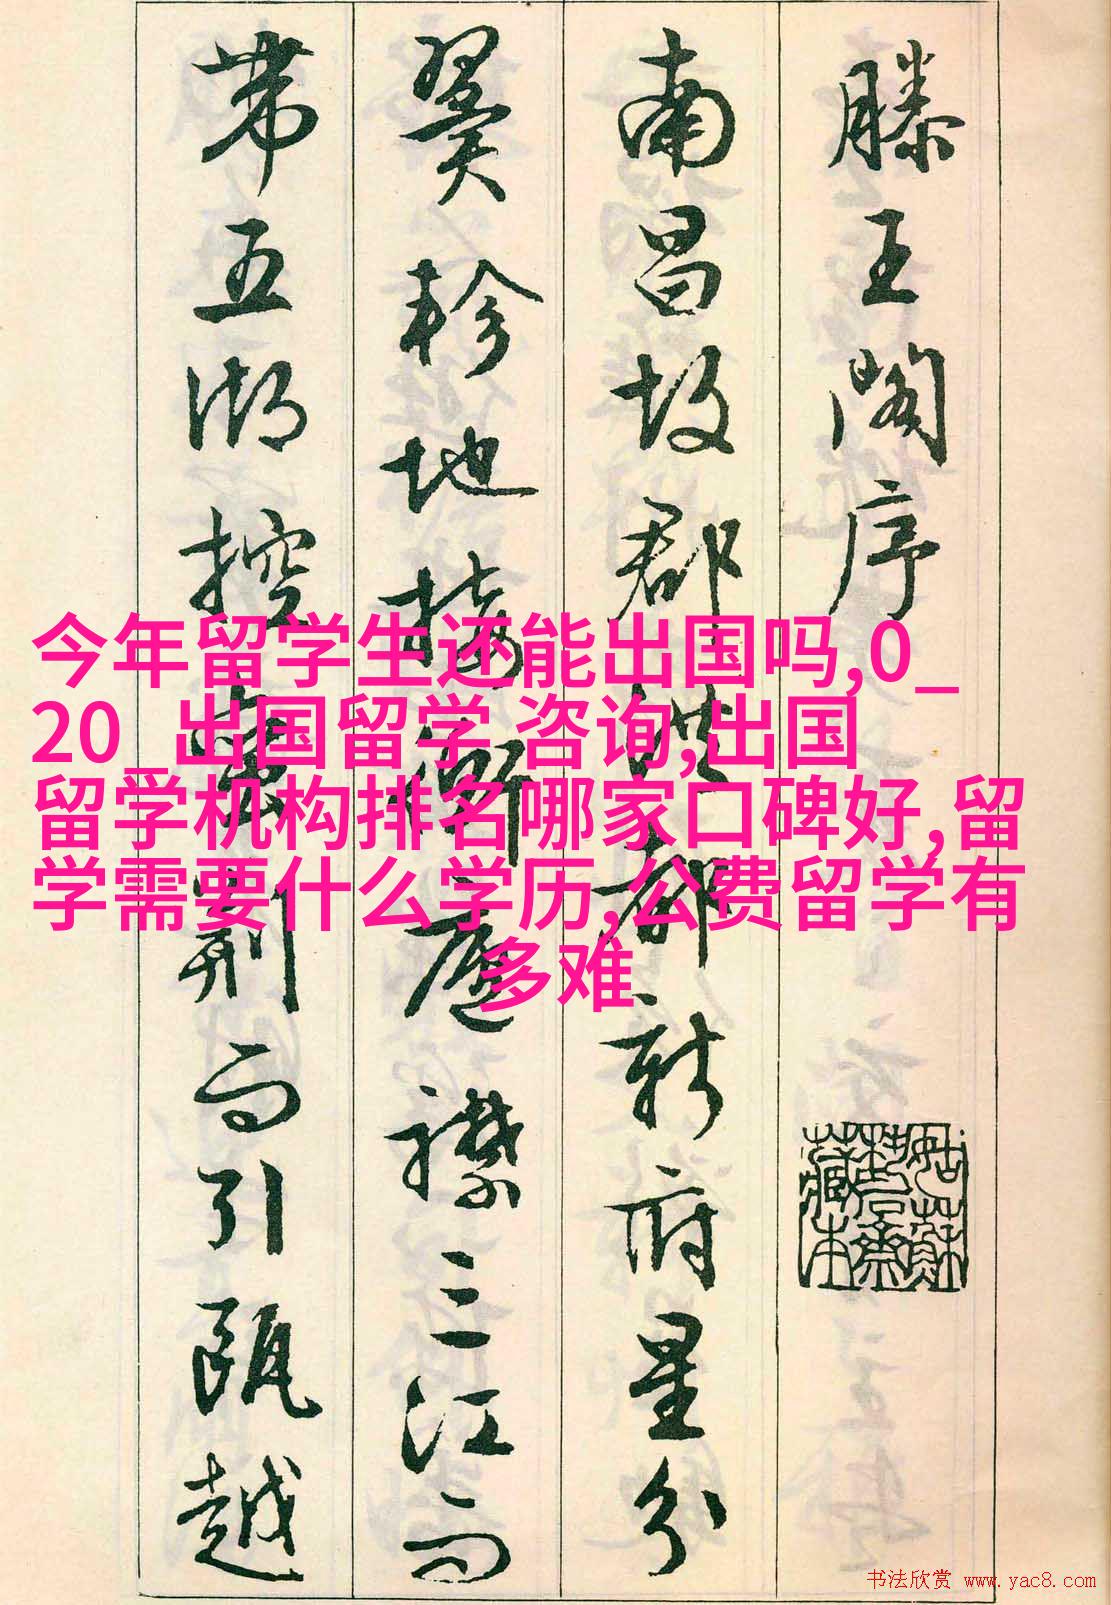 滕王閣序
南昌故郡洪都新府星分
翼軫地接衡廬襟三江而
帶五湖控蠻荊而引甌越
今年留学生还能出国吗,0_
20_出国留学 咨询,出国
留学机构排名哪家口碑好,留
学需要什么学历,公费留学有
多难
姑蘇
藏本
书法欣赏 www.yac8.com